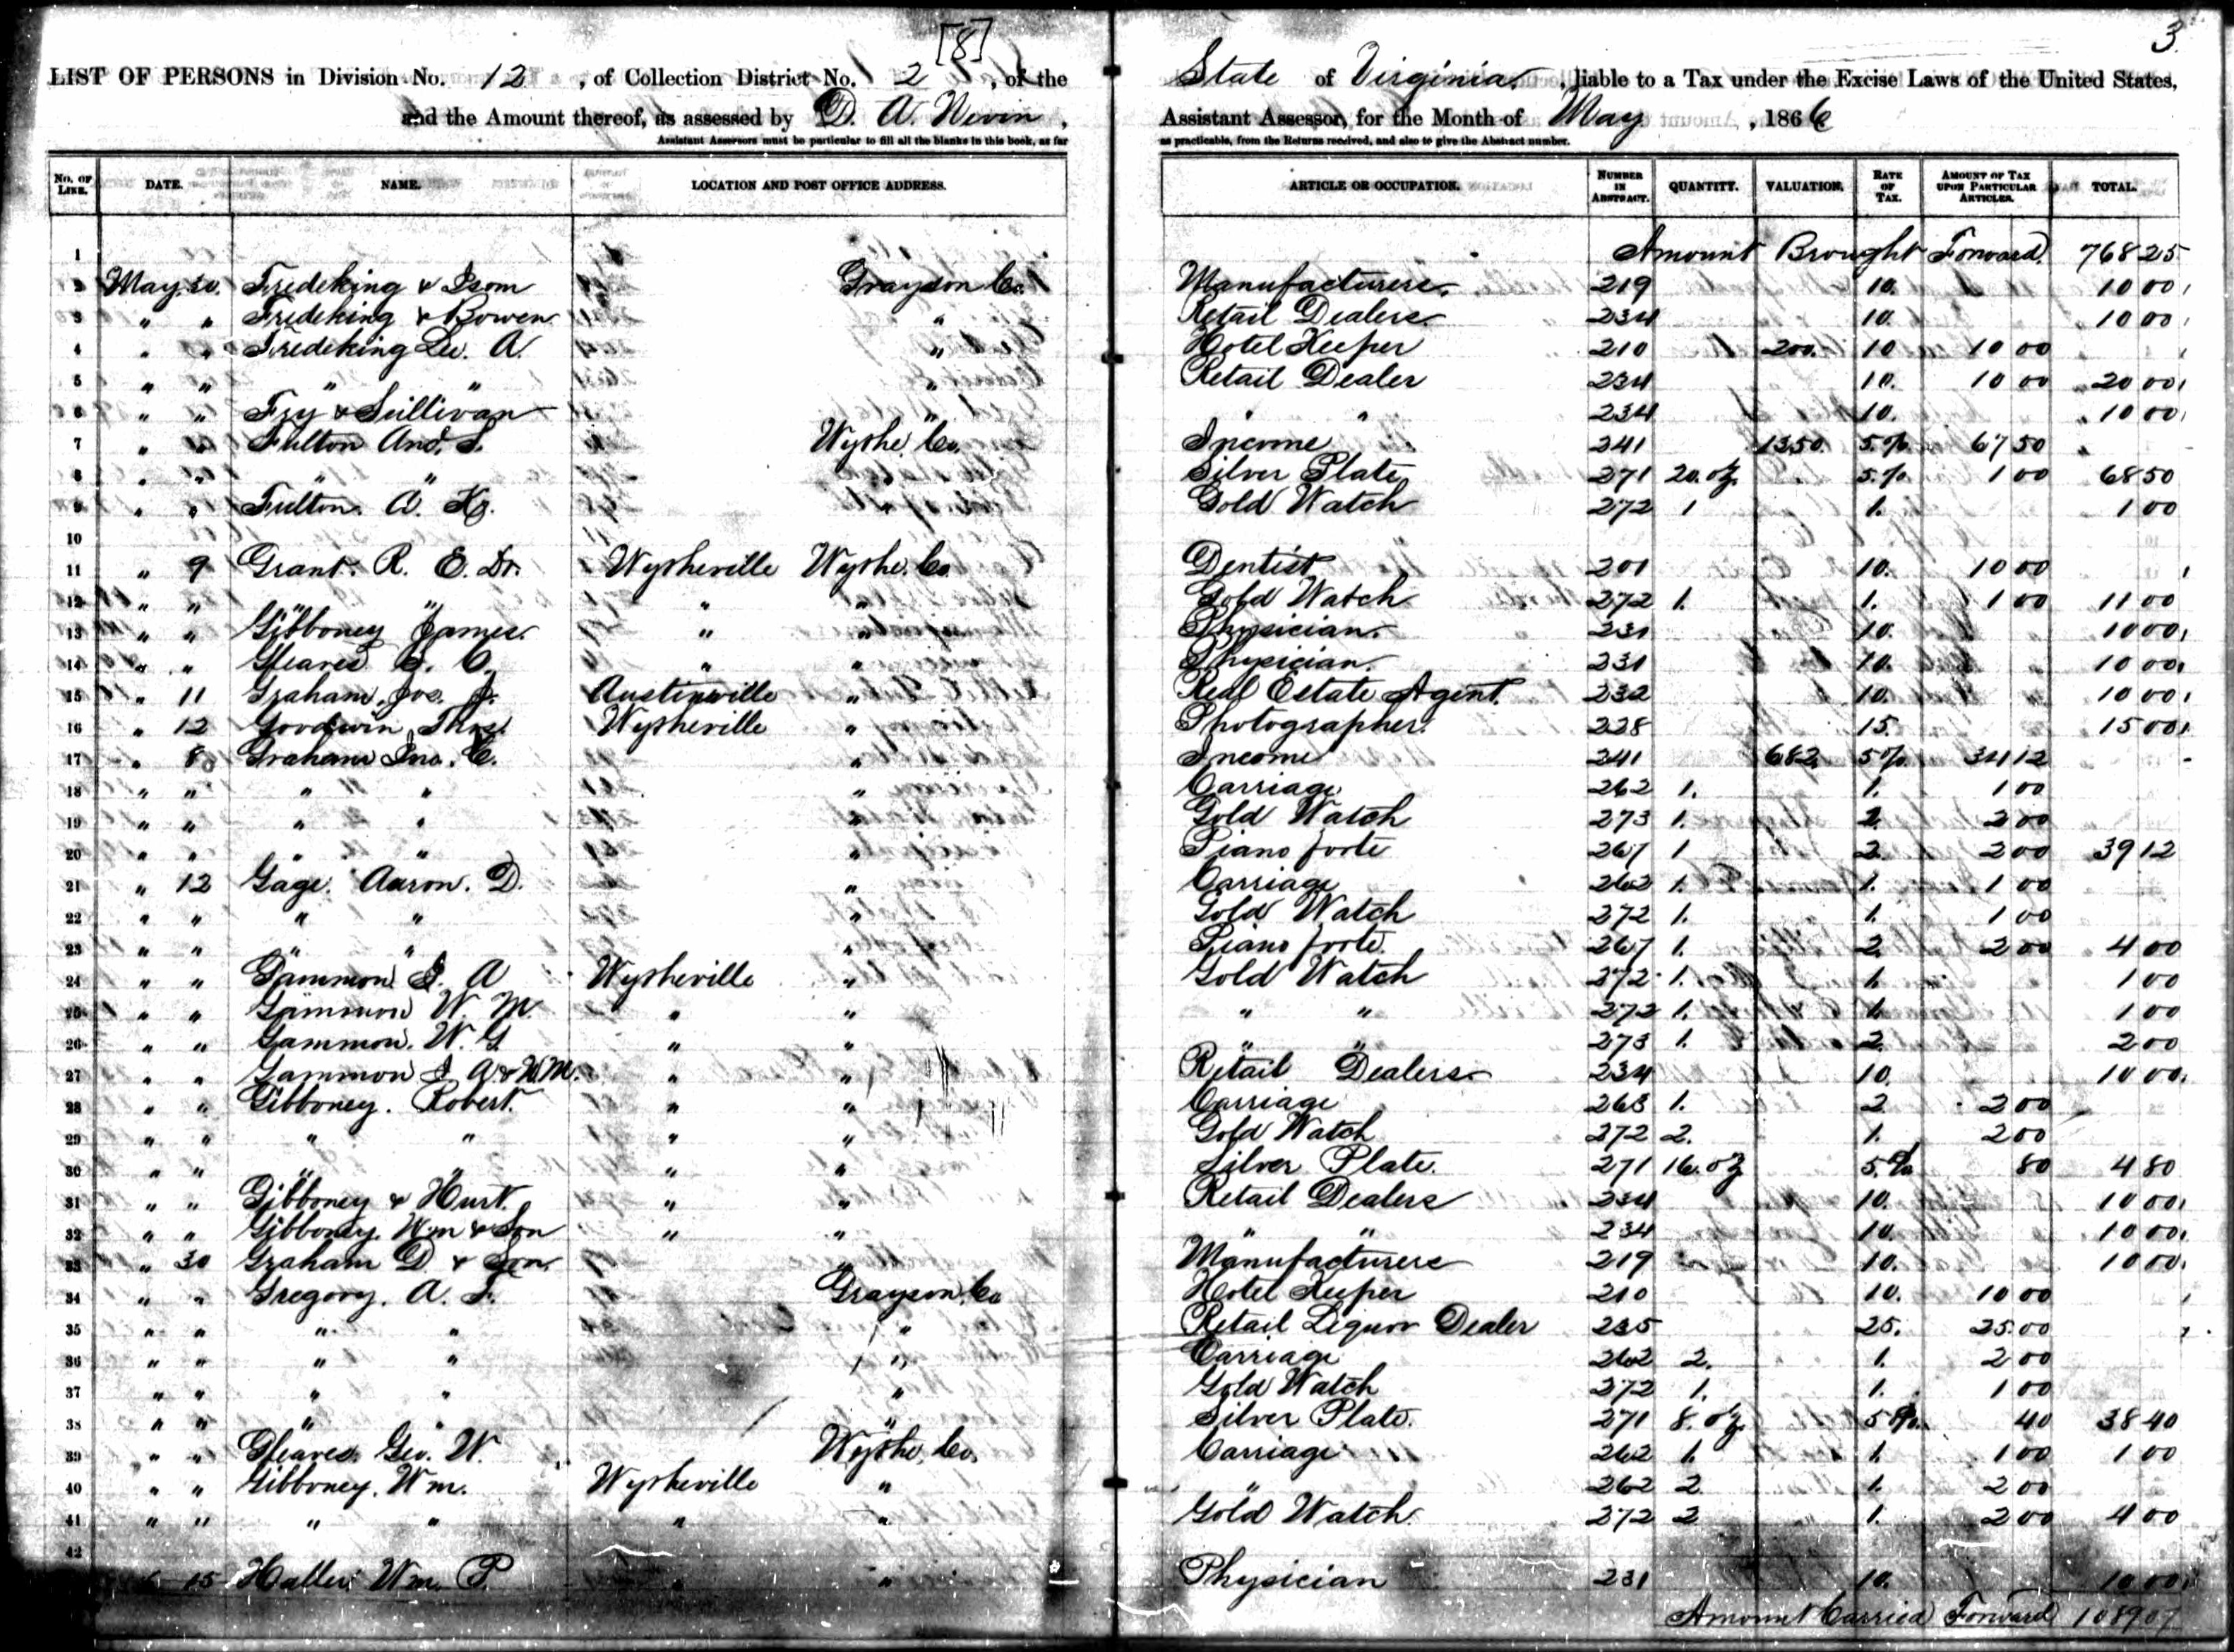 [8]
3.
LIST OF PERSONS in Division No. 12, of Collection District No. 2, of the State of Virginia, liable to a Tax under the Excise Laws of the United States,
and the Amount thereof, as assessed by D. A. Nivin, Assistant Assessor, for the Month of May, 1866
Assistant Assessors must be particular to fill all the blanks in this book, as far as practicable, from the Returns received, and also to give the Abstract number.
No. of Line. DATE. NAME. LOCATION AND POST OFFICE ADDRESS. ARTICLE OR OCCUPATION. Number in Abstract. QUANTITY. VALUATION. Rate of Tax. Amount of Tax upon Particular Articles. TOTAL.
1 Amount Brought Forward. 768 25
2 May 30. Fredeking & Isom Grayson Co. Manufacturers. 219 10. 10 00
3 " " Fredeking & Bowen " Retail Dealers 234 10. 10 00
4 " " Fredeking Lew. A. " Hotel Keeper 210 200. 10 10 00
5 " " " " " Retail Dealer 234 10. 10 00 20 00
6 " " Fry & Sullivan " " " 234 10. 10 00
7 " " Fulton And. S. Wythe Co. Income 241 1350. 5.% 67 50
8 " " " " " Silver Plate 271 20. oz. 5.% 1 00 68 50
9 " " Fulton. A. K. " Gold Watch 272 1 1. 1 00
10
11 " 9 Grant. R. E. Dr. Wytheville Wythe. Co. Dentist 201 10. 10 00
12 " " " " " Gold Watch 272 1. 1. 1 00 11 00
13 " " Gibboney James. " " Physician. 231 10. 10 00
14 " " Gleaves S. C. " " Physician. 231 10. 10 00
15 " 11 Graham. Jos. J. Austinville " Real Estate Agent. 232 10. 10 00
16 " 12 Goodwin Thos. Wytheville " Photographer. 228 15. 15 00
17 " 8 Graham Jno. C. " Income 241 682 5% 34 12
18 " " " " " Carriage 262 1. 1. 1 00
19 " " " " " Gold Watch 273 1. 2. 2 00
20 " " " " " Piano forte 267 1 2. 2 00 39 12
21 " 12 Gage. Aaron. D. " Carriage 262 1. 1. 1 00
22 " " " " " Gold Watch 272 1. 1. 1 00
23 " " " " " Piano forte. 267 1. 2. 2 00 4 00
24 " " Gammon J. A Wytheville " Gold Watch 272 1. 1. 1 00
25 " " Gammon W. M. " " " " 272 1. 1. 1 00
26 " " Gammon. W. G. " " " " 273 1. 2. 2 00
27 " " Gammon J A & W M. " " Retail Dealers 234 10. 10 00
28 " " Gibboney. Robert. " " Carriage 263 1. 2 2 00
29 " " " " " " Gold Watch 272 2. 1. 2 00
30 " " " " " " Silver Plate. 271 16. oz 5.% 80 4 80
31 " " Gibboney & Hurt. " " Retail Dealers 234 10. 10 00
32 " " Gibboney. Wm & Son " " " " 234 10. 10 00
33 " 30 Graham D. & Son " Manufacturers 219 10. 10 00
34 " " Gregory. A. F. Grayson. Co Hotel Keeper 210 10. 10 00
35 " " " " " Retail Liquor Dealer 235 25. 25.00
36 " " " " " Carriage 262 2. 1. 2 00
37 " " " " " Gold Watch 272 1. 1. 1 00
38 " " " " " Silver Plate. 271 8. oz. 5%. 40 38 40
39 " " Gleaves. Geo. W. Wythe, Co. Carriage 262 1. 1. 1 00 1 00
40 " " Gibboney. Wm. Wytheville " " 262 2 1. 2 00
41 " " " " " " Gold Watch 272 2 1. 2 00 4 00
42
15 Haller Wm. P. " " Physician 231 10. 10 00
Amount Carried Forward 1089 07